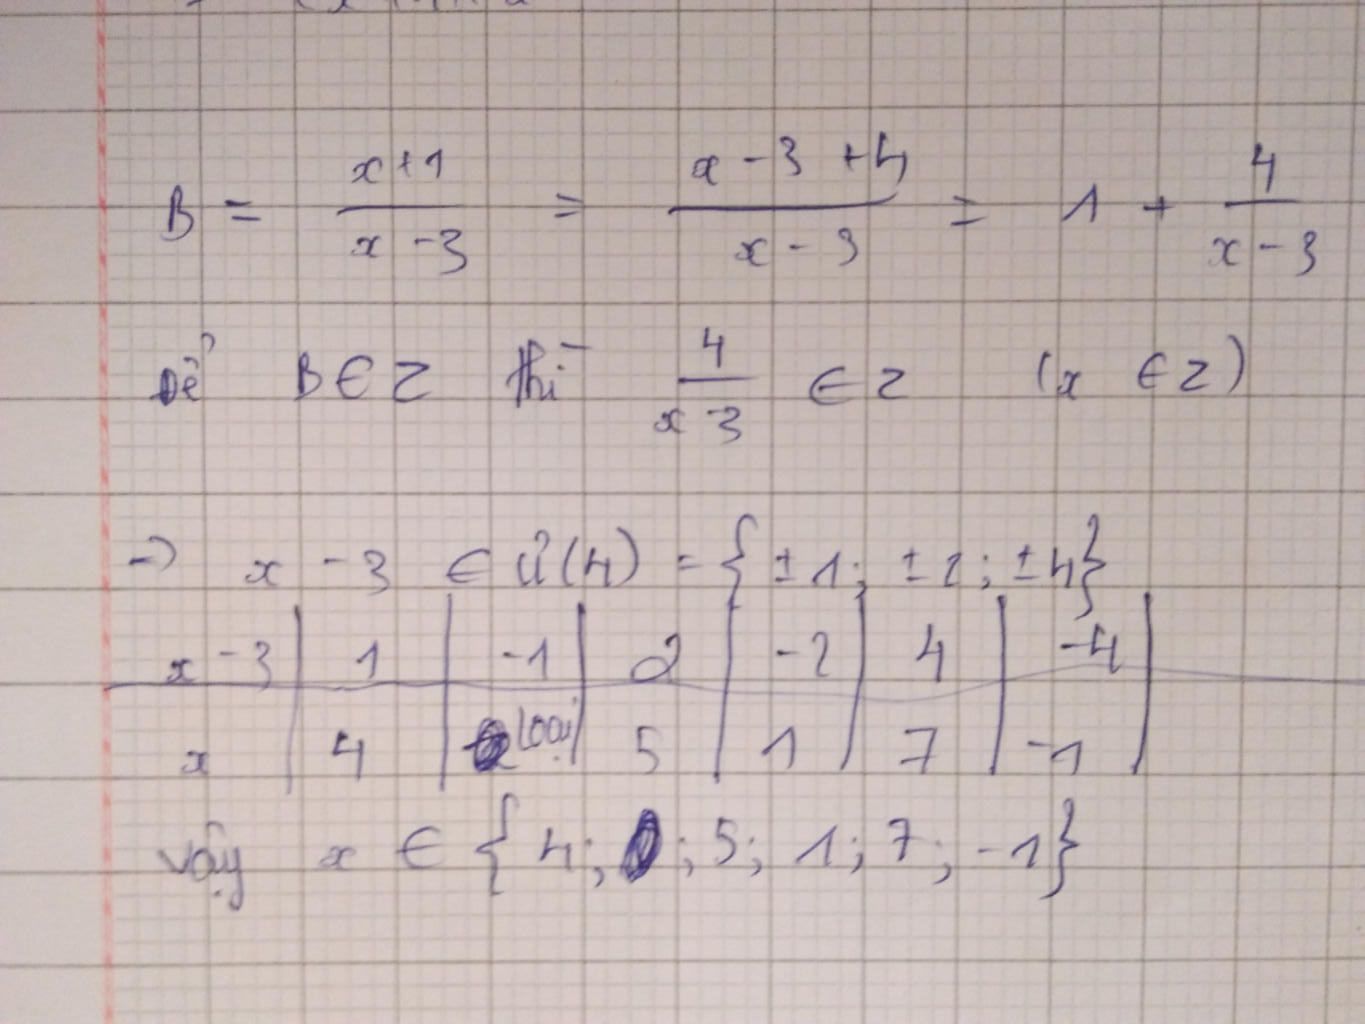 B = x+1 / x-3 = x-3+4 / x-3 = 1 + 4 / x-3
Để B ∈ Z thì 4 / x-3 ∈ Z (x ∈ Z)
→ x - 3 ∈ Ư(4) = { ±1; ±2; ±4}
x-3 | 1 | -1 | 2 | -2 | 4 | -4 |
x | 4 | loại | 5 | 1 | 7 | -1 |
vậy x ∈ { 4; ; 5; 1; 7; -1}